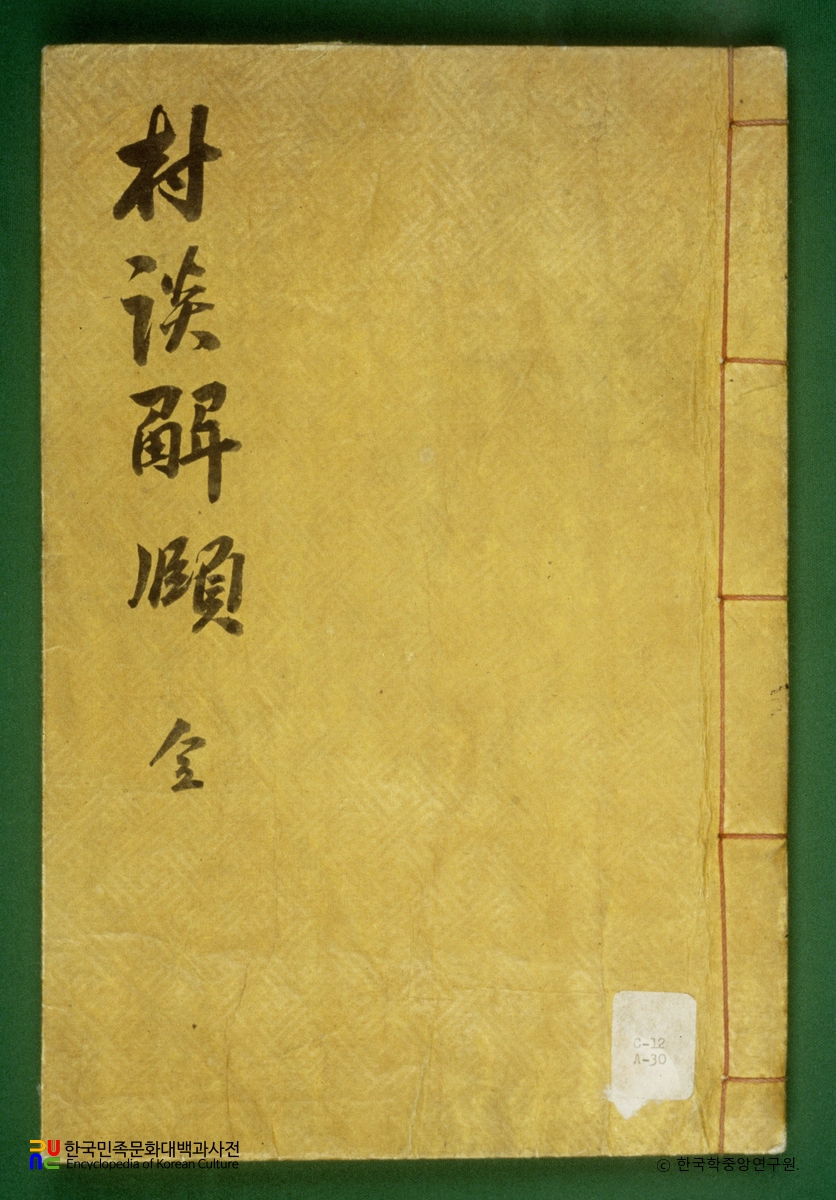 村談解頤 全
C-12
A-30
한국민족문화대백과사전
Encyclopedia of Korean Culture
© 한국학중앙연구원.